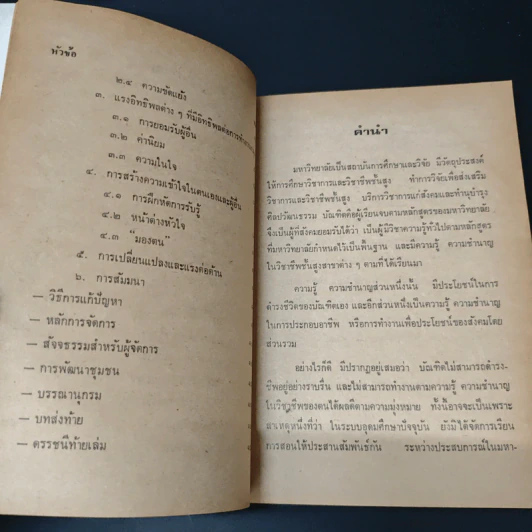 หัวข้อ
๒.๔ ความขัดแย้ง
๓. แรงอิทธิพลต่าง ๆ ที่มีอิทธิพลต่อการทำงาน
๓.๑ การยอมรับผู้อื่น
๓.๒ ค่านิยม
๓.๓ ความในใจ
๔. การสร้างความเข้าใจในตนเองและผู้อื่น
๔.๑ การฝึกหัดการรับรู้
๔.๒ หน้าต่างหัวใจ
๔.๓ "มองตน"
๕. การเปลี่ยนแปลงและแรงต่อต้าน
๖. การสัมมนา
— วิธีการแก้ปัญหา
— หลักการจัดการ
— สัจธรรมสำหรับผู้จัดการ
— การพัฒนาชุมชน
— บรรณานุกรม
— บทส่งท้าย
— ดรรชนีท้ายเล่ม
คำนำ
มหาวิทยาลัยเป็นสถาบันการศึกษาและวิจัย มีวัตถุประสงค์
ให้การศึกษาวิชาการและวิชาชีพชั้นสูง ทำการวิจัยเพื่อส่งเสริม
วิชาการและวิชาชีพชั้นสูง บริการวิชาการแก่สังคมและทำนุบำรุง
ศิลปวัฒนธรรม บัณฑิตคือผู้เรียนจบตามหลักสูตรของมหาวิทยาลัย
จึงเป็นผู้ที่สังคมยอมรับได้ว่า เป็นผู้มีวิชาความรู้ทั่วไปตามหลักสูตร
ที่มหาวิทยาลัยกำหนดไว้เป็นพื้นฐาน และมีความรู้ ความชำนาญ
ในวิชาชีพชั้นสูงสาขาต่าง ๆ ตามที่ได้เรียนมา
ความรู้ ความชำนาญส่วนหนึ่งนั้น มีประโยชน์ในการ
ดำรงชีวิตของบัณฑิตเอง และอีกส่วนหนึ่งเป็นความรู้ ความชำนาญ
ในการประกอบอาชีพ หรือการทำงานเพื่อประโยชน์ของสังคมโดย
ส่วนรวม
อย่างไรก็ดี มีปรากฏอยู่เสมอว่า บัณฑิตไม่สามารถดำรง-
ชีพอยู่อย่างราบรื่น และไม่สามารถทำงานตามความรู้ ความชำนาญ
ในวิชาชีพของตนได้ผลดีตามความมุ่งหมาย ทั้งนี้อาจจะเป็นเพราะ
สาเหตุหนึ่งที่ว่า ในระบบอุดมศึกษาปัจจุบัน ยังมิได้จัดการเรียน
การสอนให้ประสานสัมพันธ์กัน ระหว่างประสบการณ์ในมหา-